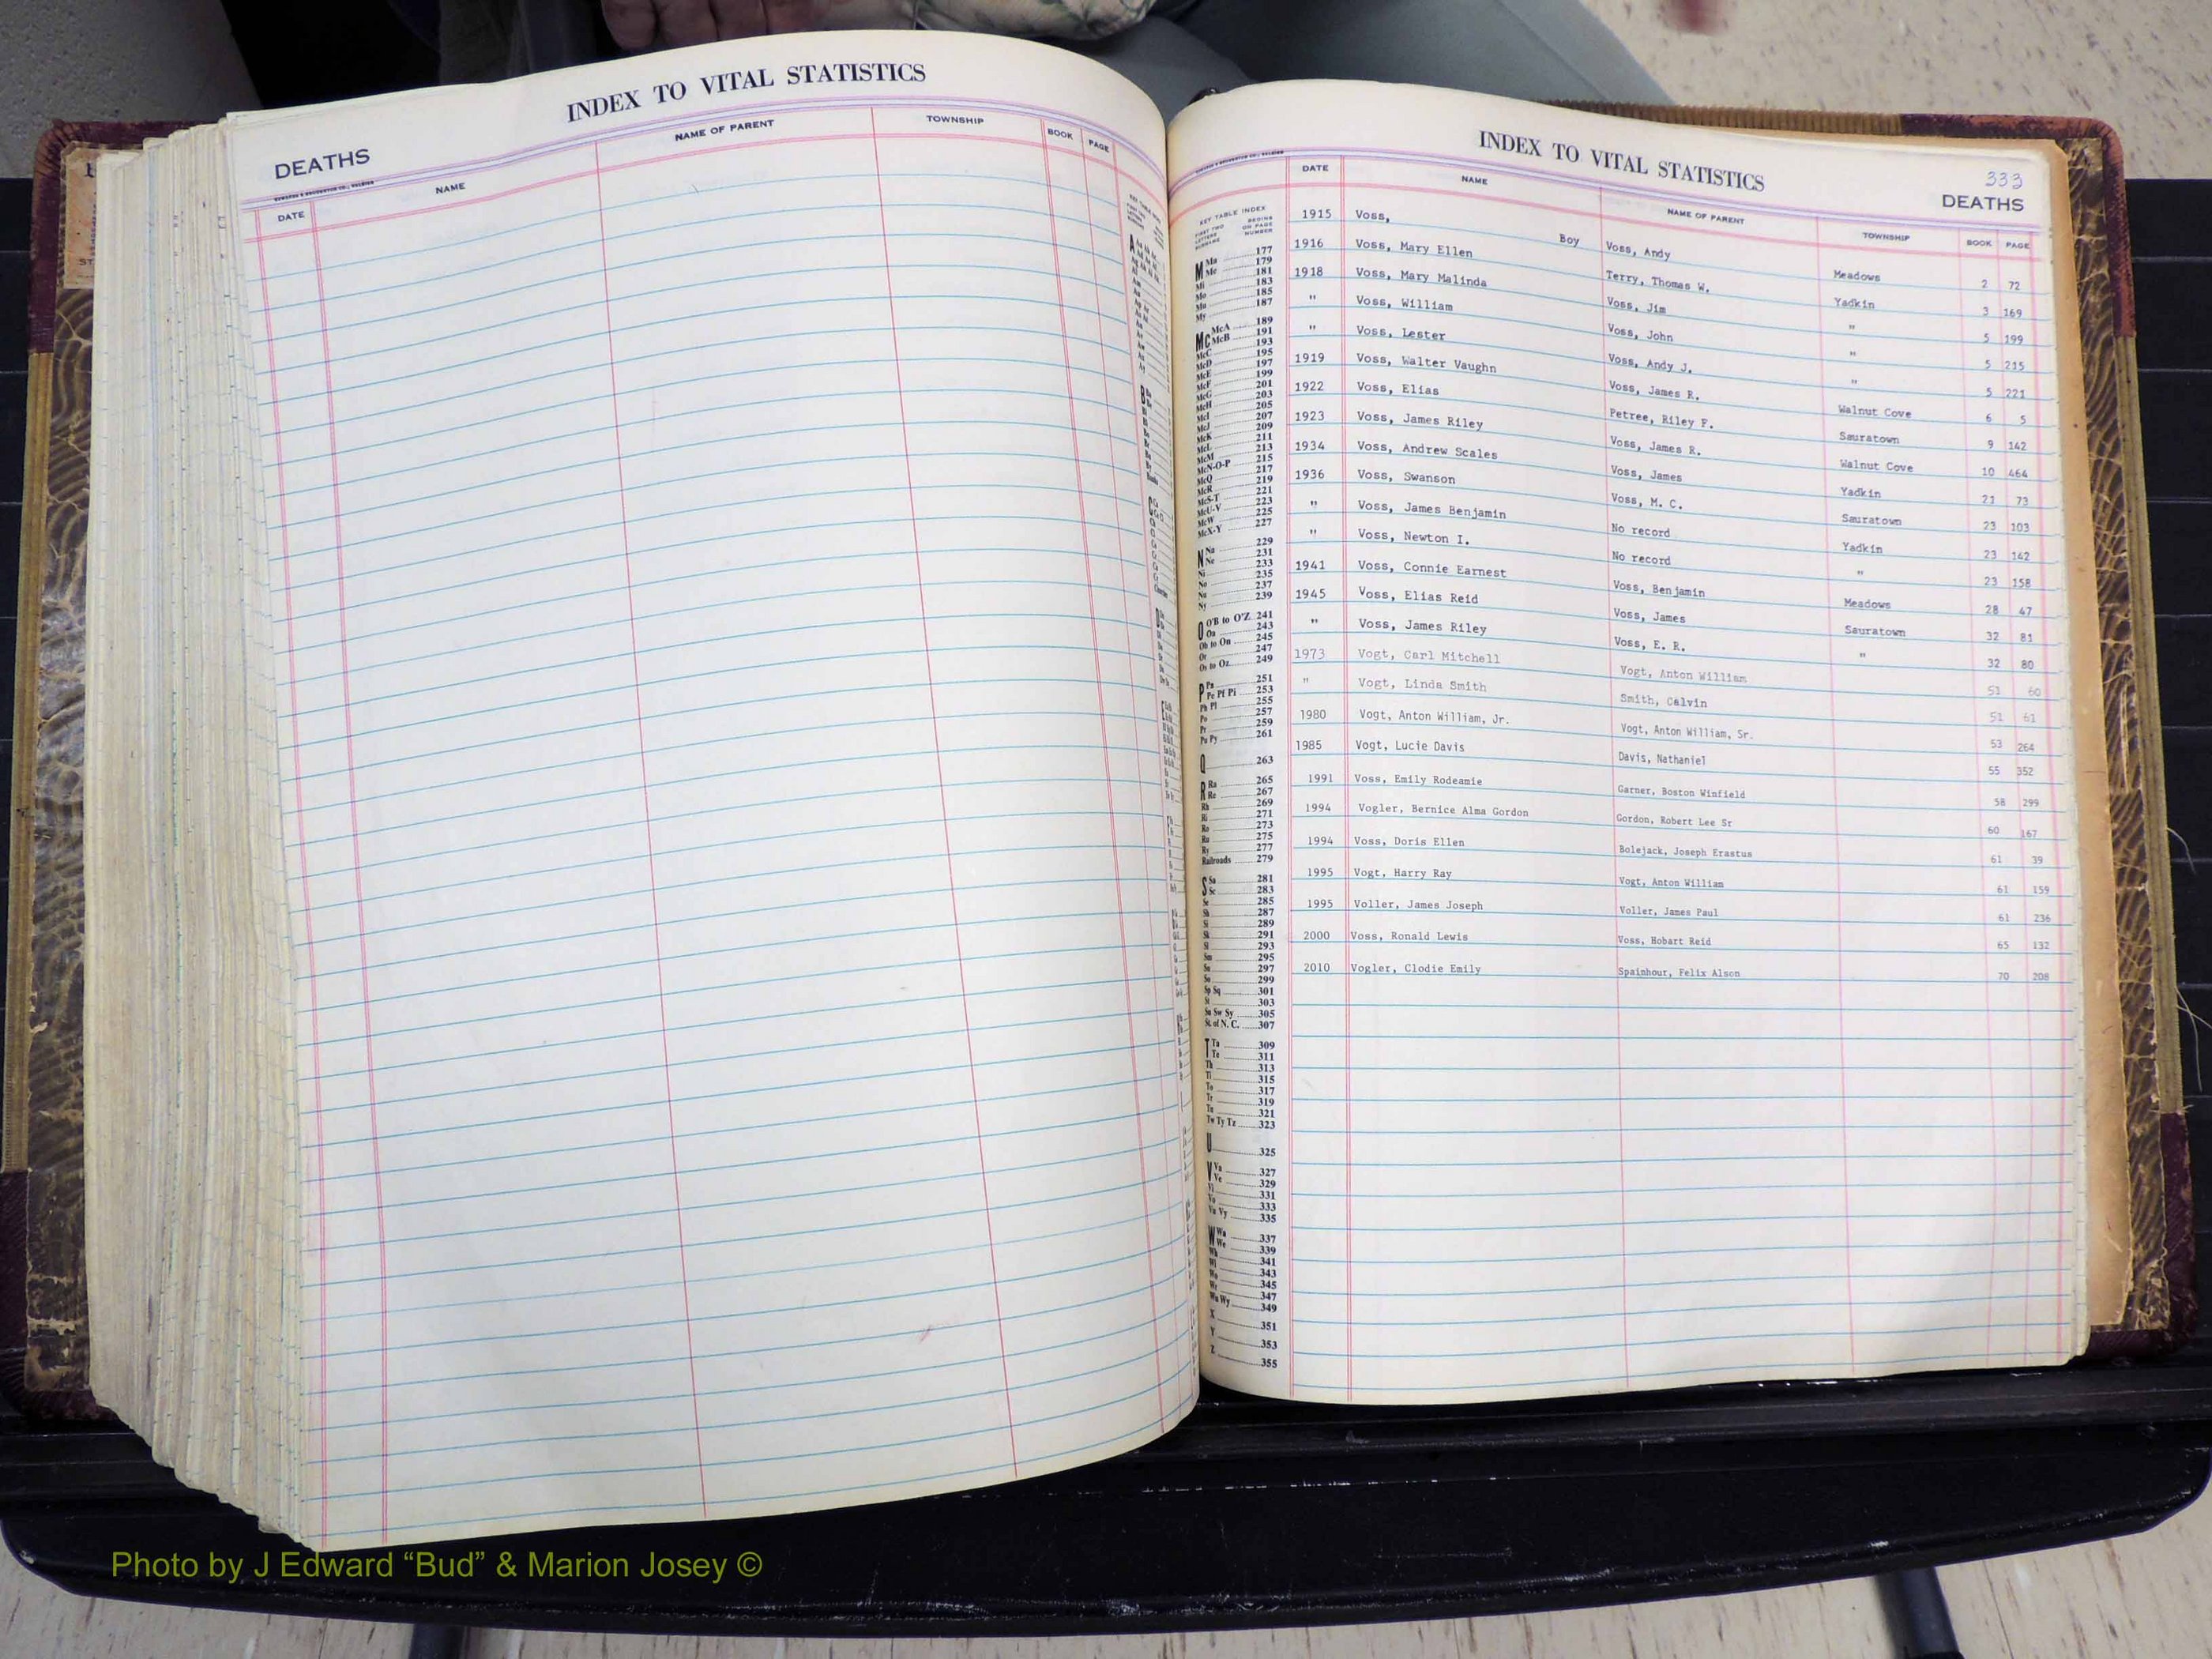 INDEX TO VITAL STATISTICS
DEATHS
DATE NAME NAME OF PARENT TOWNSHIP BOOK PAGE
INDEX TO VITAL STATISTICS
333
DEATHS
DATE NAME NAME OF PARENT TOWNSHIP BOOK PAGE
1915 Voss, Boy Voss, Andy Meadows 2 72
1916 Voss, Mary Ellen Terry, Thomas W. Yadkin 3 169
1918 Voss, Mary Malinda Voss, Jim " 5 199
" Voss, William Voss, John " 5 215
" Voss, Lester Voss, Andy J. " 5 221
1919 Voss, Walter Vaughn Voss, James R. Walnut Cove 6 5
1922 Voss, Elias Petree, Riley F. Sauratown 9 142
1923 Voss, James Riley Voss, James R. Walnut Cove 10 464
1934 Voss, Andrew Scales Voss, James Yadkin 21 73
1936 Voss, Swanson Voss, M. C. Sauratown 23 103
" Voss, James Benjamin No record Yadkin 23 142
" Voss, Newton I. No record " 23 158
1941 Voss, Connie Earnest Voss, Benjamin Meadows 28 47
1945 Voss, Elias Reid Voss, James Sauratown 32 81
" Voss, James Riley Voss, E. R. " 32 80
1973 Vogt, Carl Mitchell Vogt, Anton William 51 60
" Vogt, Linda Smith Smith, Calvin 51 61
1980 Vogt, Anton William, Jr. Vogt, Anton William, Sr. 53 264
1985 Vogt, Lucie Davis Davis, Nathaniel 55 352
1991 Voss, Emily Rodeamie Garner, Boston Winfield 58 299
1994 Vogler, Bernice Alma Gordon Gordon, Robert Lee Sr 60 167
1994 Voss, Doris Ellen Bolejack, Joseph Erastus 61 39
1995 Vogt, Harry Ray Vogt, Anton William 61 159
1995 Voller, James Joseph Voller, James Paul 61 236
2000 Voss, Ronald Lewis Voss, Hobart Reid 65 132
2010 Vogler, Clodie Emily Spainhour, Felix Alson 70 208
KEY TABLE INDEX
M Ma 177
Me 179
Mi 181
Mo 183
Mu 185
My 187
Mc McA 189
McB 191
McC 193
McD 195
McE 197
McF 199
McG 201
McH 203
McI 205
McJ 207
McK 209
McL 211
McM 213
McN-O-P 215
McQ 217
McR 219
McS-T 221
McU-V 223
McW 225
McX-Y 227
N Na 229
Ne 231
Ni 233
No 235
Nu 237
Ny 239
O O'B to O'Z 241
Oa 243
Ob to On 245
Or 247
Os to Oz 249
P Pa 251
Pe Pf Pi 253
Ph Pl 255
Po 257
Pr 259
Pu Py 261
Q 263
R Ra 265
Re 267
Rh 269
Ri 271
Ro 273
Ru 275
Ry 277
Railroads 279
S Sa 281
Sc 283
Se 285
Sh 287
Si 289
Sk 291
Sl 293
Sm 295
Sn 297
So 299
Sp Sq 301
St 303
Su Sw Sy 305
St. of N. C. 307
T Ta 309
Te 311
Th 313
Ti 315
To 317
Tr 319
Tu 321
Tw Ty Tz 323
U 325
V Va 327
Ve 329
Vi 331
Vo 333
Vu Vy 335
W Wa 337
We 339
Wh 341
Wi 343
Wo 345
Wr 347
Wu Wy 349
X 351
Y 353
Z 355
Photo by J Edward “Bud” & Marion Josey ©